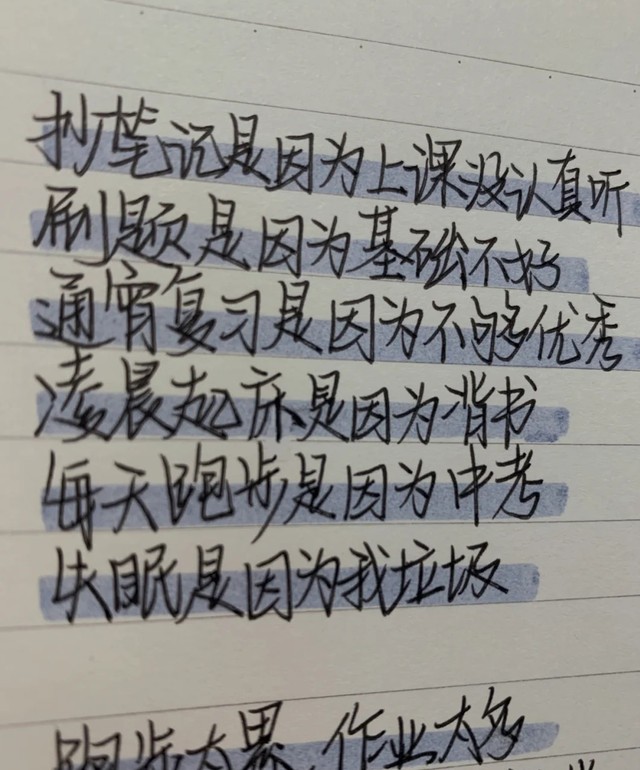 抄笔记是因为上课没认真听
刷题是因为基础不好
通宵复习是因为不够优秀
凌晨起床是因为背书
每天跑步是因为中考
失眠是因为我垃圾
跑步太累,作业太多